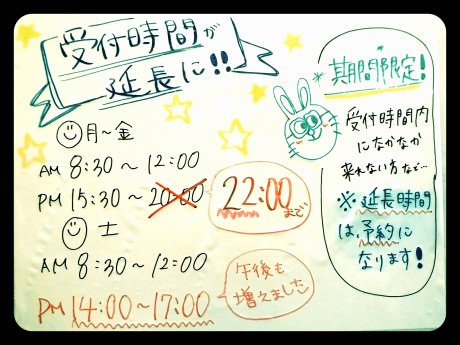 受付時間が
延長に!!
月～金
AM 8:30～12:00
PM 15:30～20:00 22:00まで
土
AM 8:30～12:00
PM 14:00～17:00
午後も
増えました
*期間限定!
受付時間内
になかなか
来れない方など…
※延長時間
は、予約に
なります!